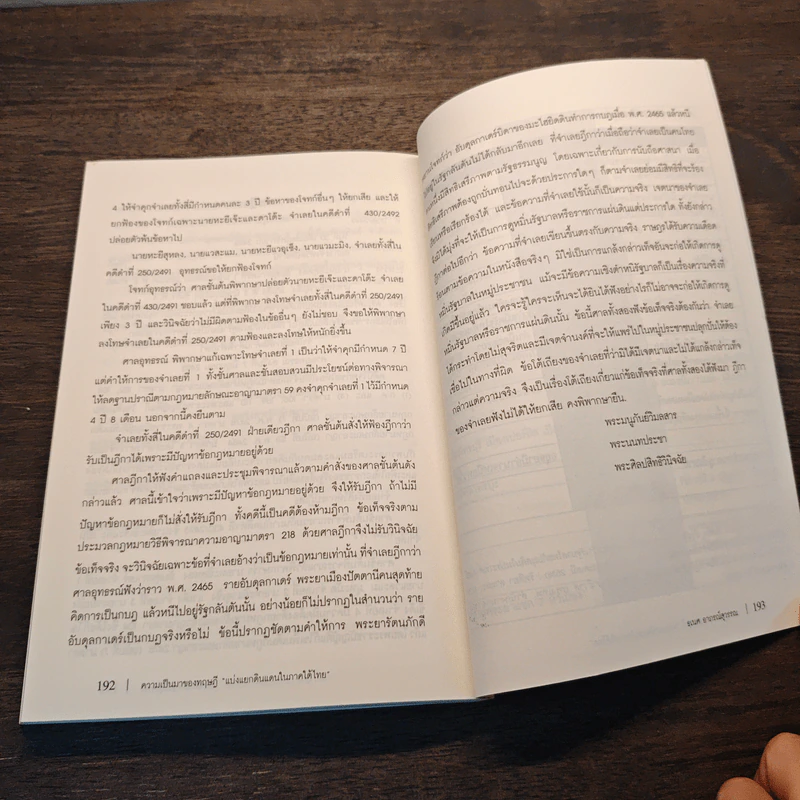 4 ให้จำคุกจำเลยทั้งสี่มีกำหนดคนละ 3 ปี ข้อหาของโจทก์อื่นๆ ให้ยกเสีย และให้
ยกฟ้องของโจทก์เฉพาะนายหะยีเจ๊ะและตาโต๊ะ จำเลยในคดีดำที่ 430/2492
ปล่อยตัวพ้นข้อหาไป
นายหะยีสุหลง, นายแวสะแม, นายหะยีแวอุเซ็ง, นายแวมะมิง, จำเลยทั้งสี่ใน
คดีดำที่ 250/2491 อุทธรณ์ขอให้ยกฟ้องโจทก์
โจทก์อุทธรณ์ว่า ศาลชั้นต้นพิพากษาปล่อยตัวนายหะยีเจ๊ะและตาโต๊ะ จำเลย
ในคดีดำที่ 430/2491 ชอบแล้ว แต่ที่พิพากษาลงโทษจำเลยทั้งสี่ในคดีดำที่ 250/2491
เพียง 3 ปี และวินิจฉัยว่าไม่มีผิดตามฟ้องในข้ออื่นๆ ยังไม่ชอบ จึงขอให้พิพากษา
ลงโทษจำเลยในคดีดำที่ 250/2491 ตามฟ้องและลงโทษให้หนักยิ่งขึ้น
ศาลอุทธรณ์ พิพากษาแก้เฉพาะโทษจำเลยที่ 1 เป็นว่าให้จำคุกมีกำหนด 7 ปี
แต่คำให้การของจำเลยที่ 1 ทั้งชั้นศาลและชั้นสอบสวนมีประโยชน์ต่อทางพิจารณา
ให้ลดฐานปราณีตามกฎหมายลักษณะอาญามาตรา 59 คงจำคุกจำเลยที่ 1 ไว้มีกำหนด
4 ปี 8 เดือน นอกจากนี้คงยืนตาม
จำเลยทั้งสี่ในคดีดำที่ 250/2491 ฝ่ายเดียวฎีกา ศาลชั้นต้นสั่งให้ฟ้องฎีกาว่า
รับเป็นฎีกาได้เพราะมีปัญหาข้อกฎหมายอยู่ด้วย
ศาลฎีกาให้ฟังคำแถลงและประชุมพิจารณาแล้วตามคำสั่งของศาลชั้นต้นดัง
กล่าวแล้ว ศาลนี้เข้าใจว่าเพราะมีปัญหาข้อกฎหมายอยู่ด้วย จึงให้รับฎีกา ถ้าไม่มี
ปัญหาข้อกฎหมายก็ไม่สั่งให้รับฎีกา ทั้งคดีนี้เป็นคดีต้องห้ามฎีกา ข้อเท็จจริงตาม
ประมวลกฎหมายวิธีพิจารณาความอาญามาตรา 218 ด้วยศาลฎีกาจึงไม่รับวินิจฉัย
ข้อเท็จจริง จะวินิจฉัยเฉพาะข้อที่จำเลยอ้างว่าเป็นข้อกฎหมายเท่านั้น ที่จำเลยฎีกาว่า
ศาลอุทธรณ์ฟังว่าราว พ.ศ. 2465 รายอับดุลกาเดร์ พระยาเมืองปัตตานีคนสุดท้าย
คิดการเป็นกบฎ แล้วหนีไปอยู่รัฐกลันตันนั้น อย่างน้อยก็ไม่ปรากฏในสำนวนว่า ราย
อับดุลกาเดร์เป็นกบฎจริงหรือไม่ ข้อนี้ปรากฏชัดตามคำให้การ พระยารัตนภักดี
192 | ความเป็นมาของทฤษฎี "แบ่งแยกดินแดนในภาคใต้ไทย"
พยานโจทก์ว่า อับดุลกาเดร์บิดาของมะไฮยิดดินทำการกบฎเมื่อ พ.ศ. 2465 แล้วหนี
ไปอยู่ในรัฐกลันตันไม่ได้กลับมาอีกเลย ที่จำเลยฎีกาว่าเมื่อถือว่าจำเลยเป็นคนไทย
คนหนึ่งมีสิทธิเสรีภาพตามรัฐธรรมนูญ โดยเฉพาะเกี่ยวกับการนับถือศาสนา เมื่อ
สิทธิเสรีภาพต้องถูกบั่นทอนไปจะด้วยประการใดๆ ก็ตามจำเลยย่อมมีสิทธิที่จะร้อง
เรียนหรือเรียกร้องได้ และข้อความที่จำเลยใช้นั้นก็เป็นความจริง เจตนาของจำเลย
มิได้มุ่งที่จะให้เป็นการดูหมิ่นรัฐบาลหรือราชการแผ่นดินแต่ประการใด ทั้งยังกล่าว
ฎีกาต่อไปอีกว่า ข้อความที่จำเลยเขียนขึ้นตรงกับความจริง ราษฎรได้รับความเดือด
ร้อนตามข้อความในหนังสือจริงๆ มิใช่เป็นการแกล้งกล่าวเท็จอันจะก่อให้เกิดการดู
หมิ่นรัฐบาลในหมู่ประชาชน แม้จะมีข้อความเชิงตำหนิรัฐบาลก็เป็นเรื่องความจริงที่
เกิดมีขึ้นอยู่แล้ว ใครจะรู้ใครจะเห็นจะได้ยินได้ฟังอย่างไรก็ไม่อาจจะก่อให้เกิดการดู
หมิ่นรัฐบาลหรือราชการแผ่นดินนั้น ข้อนี้ศาลทั้งสองฟังข้อเท็จจริงต้องกันว่า จำเลย
ได้กระทำโดยไม่สุจริตและมีเจตจำนงค์ที่จะให้แพร่ไปในหมู่ประชาชนปลุกปั่นให้ต้อง
เชื่อไปในทางที่ผิด ข้อโต้เถียงของจำเลยที่ว่ามิได้มีเจตนาและไม่ได้แกล้งกล่าวเท็จ
กล่าวแต่ความจริง จึงเป็นเรื่องโต้เถียงเกี่ยวแก่ข้อเท็จจริงที่ศาลทั้งสองได้ฟังมา ฎีกา
ของจำเลยฟังไม่ได้ให้ยกเสีย คงพิพากษายืน.
พระมนูภันย์วิมลสาร
พระนนทประชา
พระศิลปสิทธิวินิจฉัย
ธเนศ อาภรณ์สุวรรณ | 193